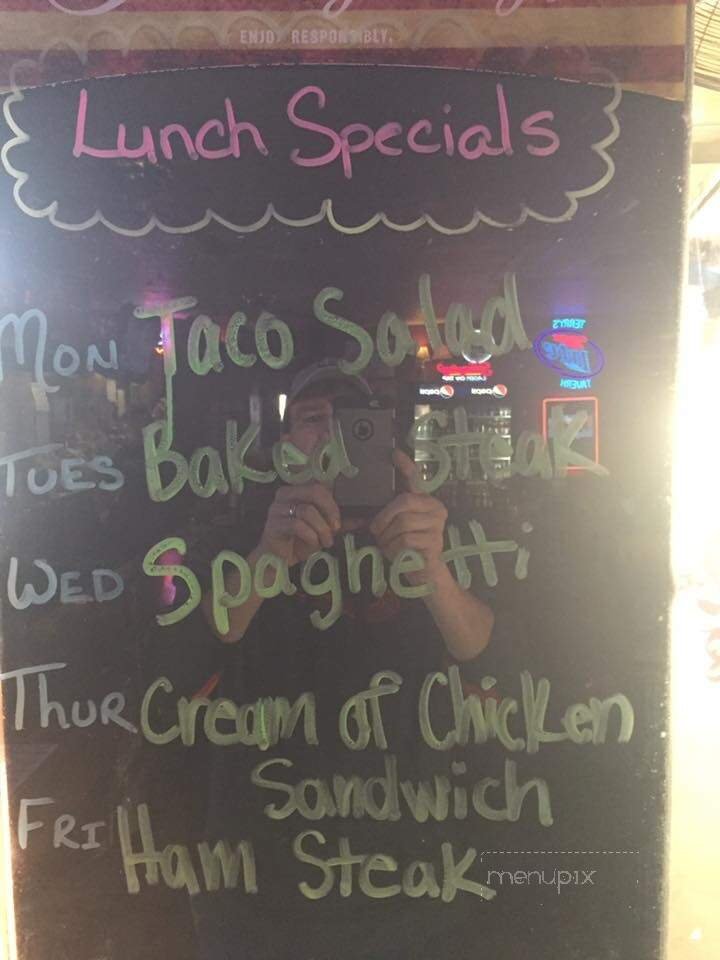 ENJOY RESPONSIBLY.
Lunch Specials
MON Taco Salad
TUES Baked Steak
WED Spaghetti
THUR Cream of Chicken
Sandwich
FRI Ham Steak
menupix
TERRY'S
TAVERN
pepsi pepsi